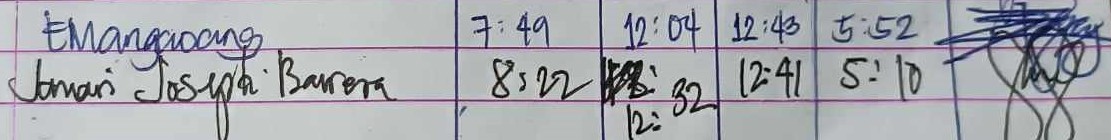 EMangawang 7:49 12:04 12:43 5:52
Jomari Joseph Barrera 8:22 12:32 12:41 5:10